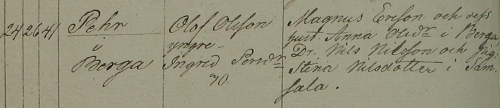 24 26 41 Pehr Olof Olsson Magnus Ersson och dess
yngre hust. Anna Olsdr i Berga
Berga Ingred Persdr Dr. Nils Nilsson och Pig.
70 Stina Nilsdotter i Sam
sala.